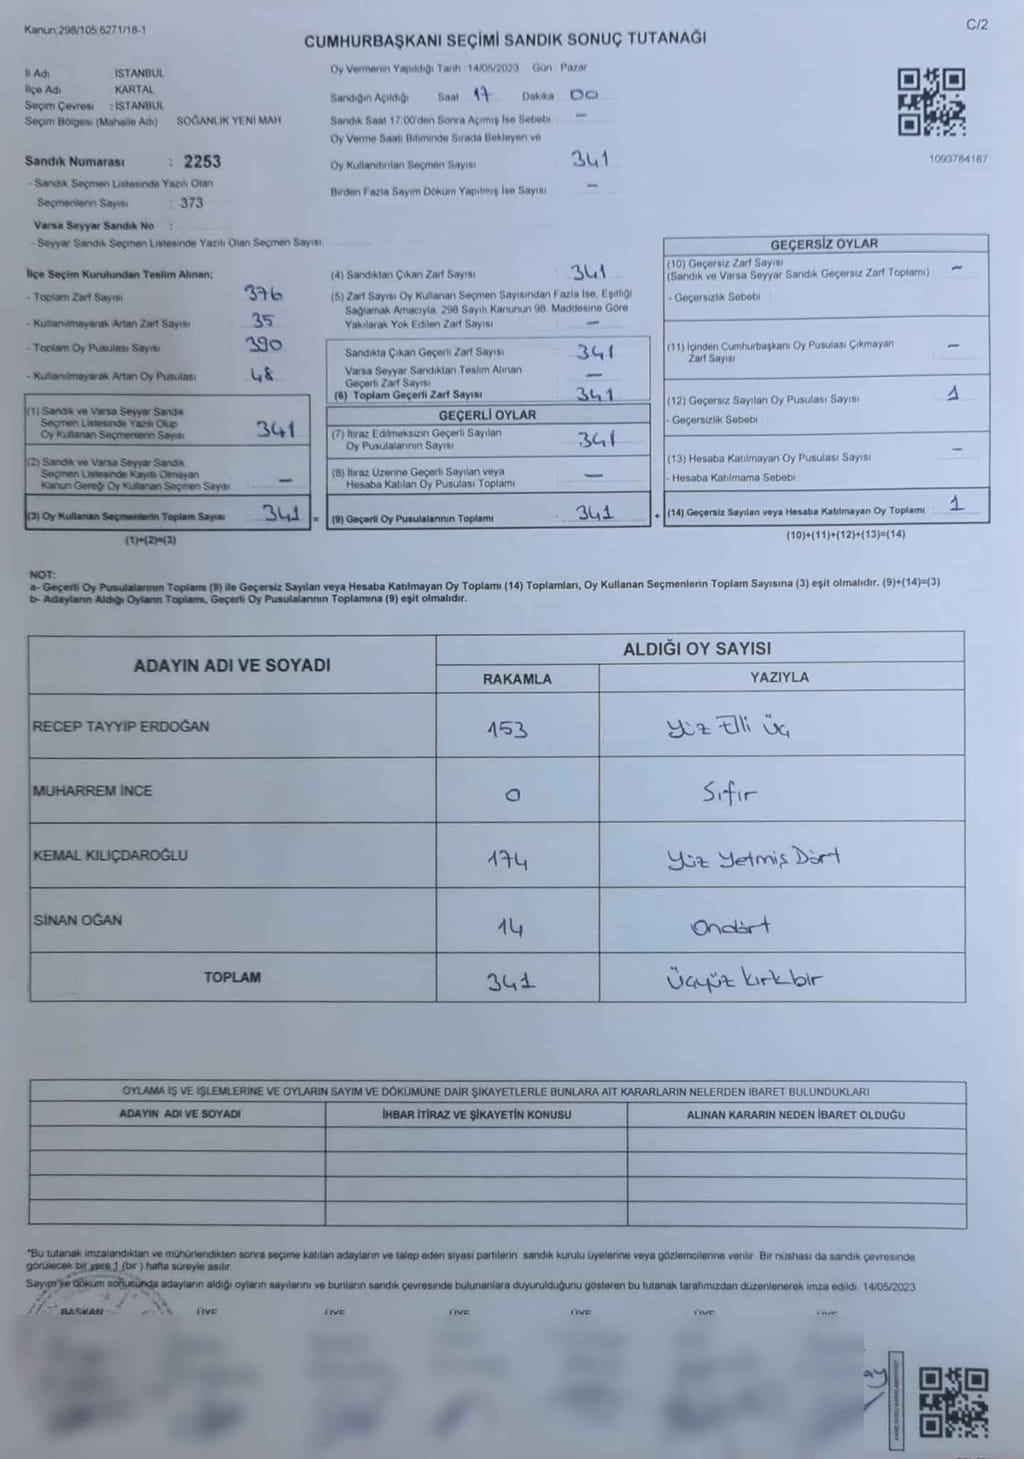 Kanun:298/105.6271/18-1
C/2
CUMHURBAŞKANI SEÇİMİ SANDIK SONUÇ TUTANAĞI
İl Adı : İSTANBUL
İlçe Adı : KARTAL
Seçim Çevresi : İSTANBUL
Seçim Bölgesi (Mahalle Adı) SOĞANLIK YENİ MAH
Sandık Numarası : 2253
- Sandık Seçmen Listesinde Yazılı Olan
Seçmenlerin Sayısı : 373
Varsa Seyyar Sandık No :
- Seyyar Sandık Seçmen Listesinde Yazılı Olan Seçmen Sayısı:
Oy Vermenin Yapıldığı Tarih : 14/05/2023 Gün : Pazar
Sandığın Açıldığı Saat 17 Dakika 00
Sandık Saat 17.00'den Sonra Açımış İse Sebebi : —
Oy Verme Saati Bitiminde Sırada Bekleyen ve
Oy Kullandırılan Seçmen Sayısı 341
Birden Fazla Sayım Döküm Yapılmış İse Sayısı —
1093784187
İlçe Seçim Kurulundan Teslim Alınan;
- Toplam Zarf Sayısı : 376
- Kullanılmayarak Artan Zarf Sayısı : 35
- Toplam Oy Pusulası Sayısı : 390
- Kullanılmayarak Artan Oy Pusulası : 48
(1) Sandık ve Varsa Seyyar Sandık
Seçmen Listesinde Yazılı Olup
Oy Kullanan Seçmenlerin Sayısı 341
(2) Sandık ve Varsa Seyyar Sandık
Seçmen Listesinde Kayıtlı Olmayan
Kanun Gereği Oy Kullanan Seçmen Sayısı —
(3) Oy Kullanan Seçmenlerin Toplam Sayısı : 341 =
(1)+(2)=(3)
(4) Sandıktan Çıkan Zarf Sayısı : 341
(5) Zarf Sayısı Oy Kullanan Seçmen Sayısından Fazla İse, Eşitliği
Sağlamak Amacıyla, 298 Sayılı Kanunun 98. Maddesine Göre
Yakılarak Yok Edilen Zarf Sayısı : —
Sandıkta Çıkan Geçerli Zarf Sayısı : 341
Varsa Seyyar Sandıktan Teslim Alınan
Geçerli Zarf Sayısı : —
(6) Toplam Geçerli Zarf Sayısı : 341
GEÇERLİ OYLAR
(7) İtiraz Edilmeksizin Geçerli Sayılan
Oy Pusulalarının Sayısı : 341
(8) İtiraz Üzerine Geçerli Sayılan veya
Hesaba Katılan Oy Pusulası Toplamı : —
(9) Geçerli Oy Pusulalarının Toplamı : 341 +
GEÇERSİZ OYLAR
(10) Geçersiz Zarf Sayısı
(Sandık ve Varsa Seyyar Sandık Geçersiz Zarf Toplamı) : —
- Geçersizlik Sebebi :
(11) İçinden Cumhurbaşkanı Oy Pusulası Çıkmayan
Zarf Sayısı —
(12) Geçersiz Sayılan Oy Pusulası Sayısı 1
- Geçersizlik Sebebi :
(13) Hesaba Katılmayan Oy Pusulası Sayısı —
- Hesaba Katılmama Sebebi :
(14) Geçersiz Sayılan veya Hesaba Katılmayan Oy Toplamı : 1
(10)+(11)+(12)+(13)=(14)
NOT:
a- Geçerli Oy Pusulalarının Toplamı (9) ile Geçersiz Sayılan veya Hesaba Katılmayan Oy Toplamı (14) Toplamları, Oy Kullanan Seçmenlerin Toplam Sayısına (3) eşit olmalıdır. (9)+(14)=(3)
b- Adayların Aldığı Oyların Toplamı, Geçerli Oy Pusulalarının Toplamına (9) eşit olmalıdır.
ADAYIN ADI VE SOYADI
ALDIĞI OY SAYISI
RAKAMLA YAZIYLA
RECEP TAYYİP ERDOĞAN 153 Yüz Elli Üç
MUHARREM İNCE 0 Sıfır
KEMAL KILIÇDAROĞLU 174 Yüz Yetmiş Dört
SİNAN OĞAN 14 Ondört
TOPLAM 341 Üçyüz kırkbir
OYLAMA İŞ VE İŞLEMLERİNE VE OYLARIN SAYIM VE DÖKÜMÜNE DAİR ŞİKAYETLERLE BUNLARA AİT KARARLARIN NELERDEN İBARET BULUNDUKLARI
ADAYIN ADI VE SOYADI İHBAR İTİRAZ VE ŞİKAYETİN KONUSU ALINAN KARARIN NEDEN İBARET OLDUĞU
*Bu tutanak imzalandıktan ve mühürlendikten sonra seçime katılan adayların ve talep eden siyasi partilerin sandık kurulu üyelerine veya gözlemcilerine verilir. Bir nüshası da sandık çevresinde
görülecek bir yere 1 (bir) hafta süreyle asılır.
Sayım ve döküm sonucunda adayların aldığı oyların sayılarını ve bunların sandık çevresinde bulunanlara duyurulduğunu gösteren bu tutanak tarafımızdan düzenlenerek imza edildi. 14/05/2023
BAŞKAN ÜYE ÜYE ÜYE ÜYE ÜYE ÜYE